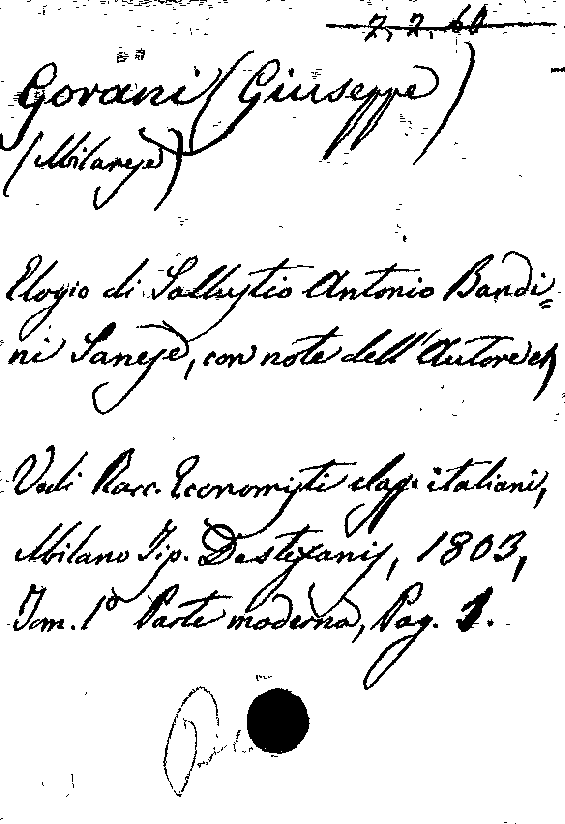 2, 2, 60
Gorani (Giuseppe)
(Milanese)
Elogio di Sallustio Antonio Bandi=
ni Sanese, con note dell'Autore
Vedi Racc. Economisti class. italiani,
Milano Tip. Destefanis, 1803,
Tom. 1º Parte moderna, Pag. 1.